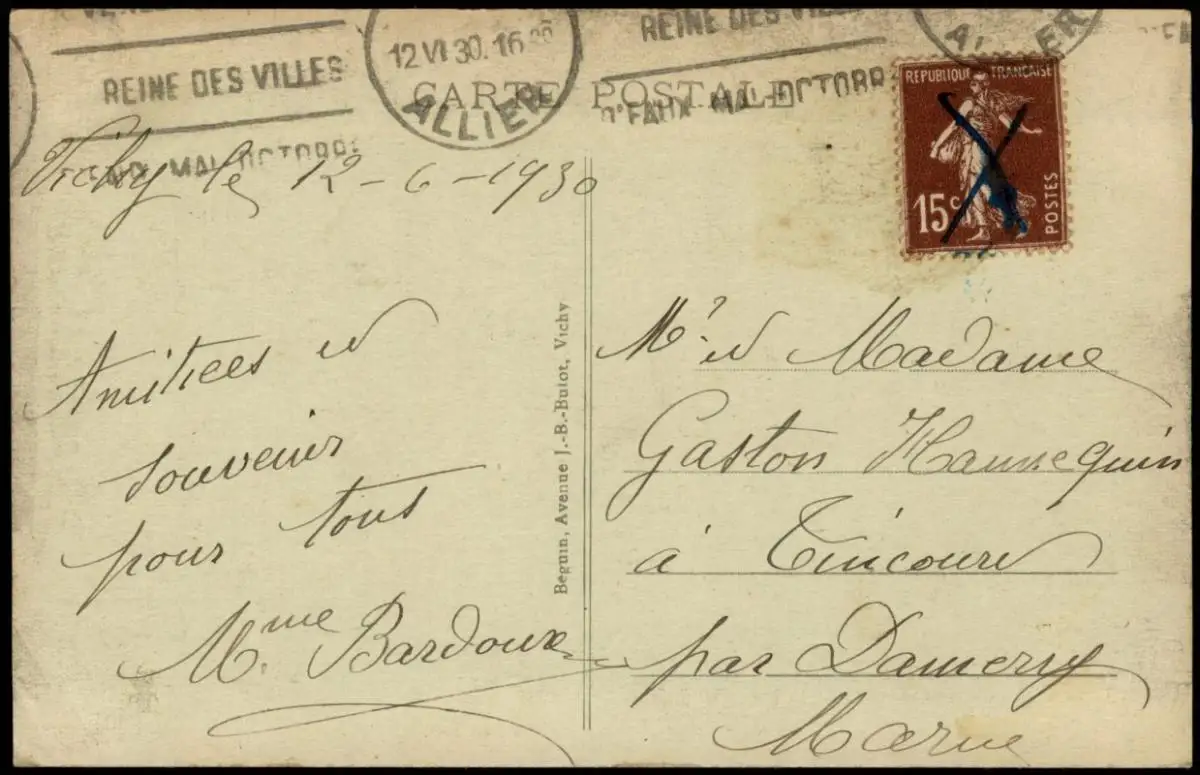 REINE DES VILLES
12 VI 30. 16
ALLIER
REINE DES VILLES
D'EAUX MAI-OCTOBRE
MAI-OCTOBRE
CARTE POSTALE
REPUBLIQUE FRANÇAISE
15c
POSTES
Vichy le 12-6-1930
Amitiées et
souvenirs
pour tous
Mme Bardoux
Beguin, Avenue J.-B.-Bulot, Vichy
Mr et Madame
Gaston Hannequin
à Tincourt
par Damery
Marne